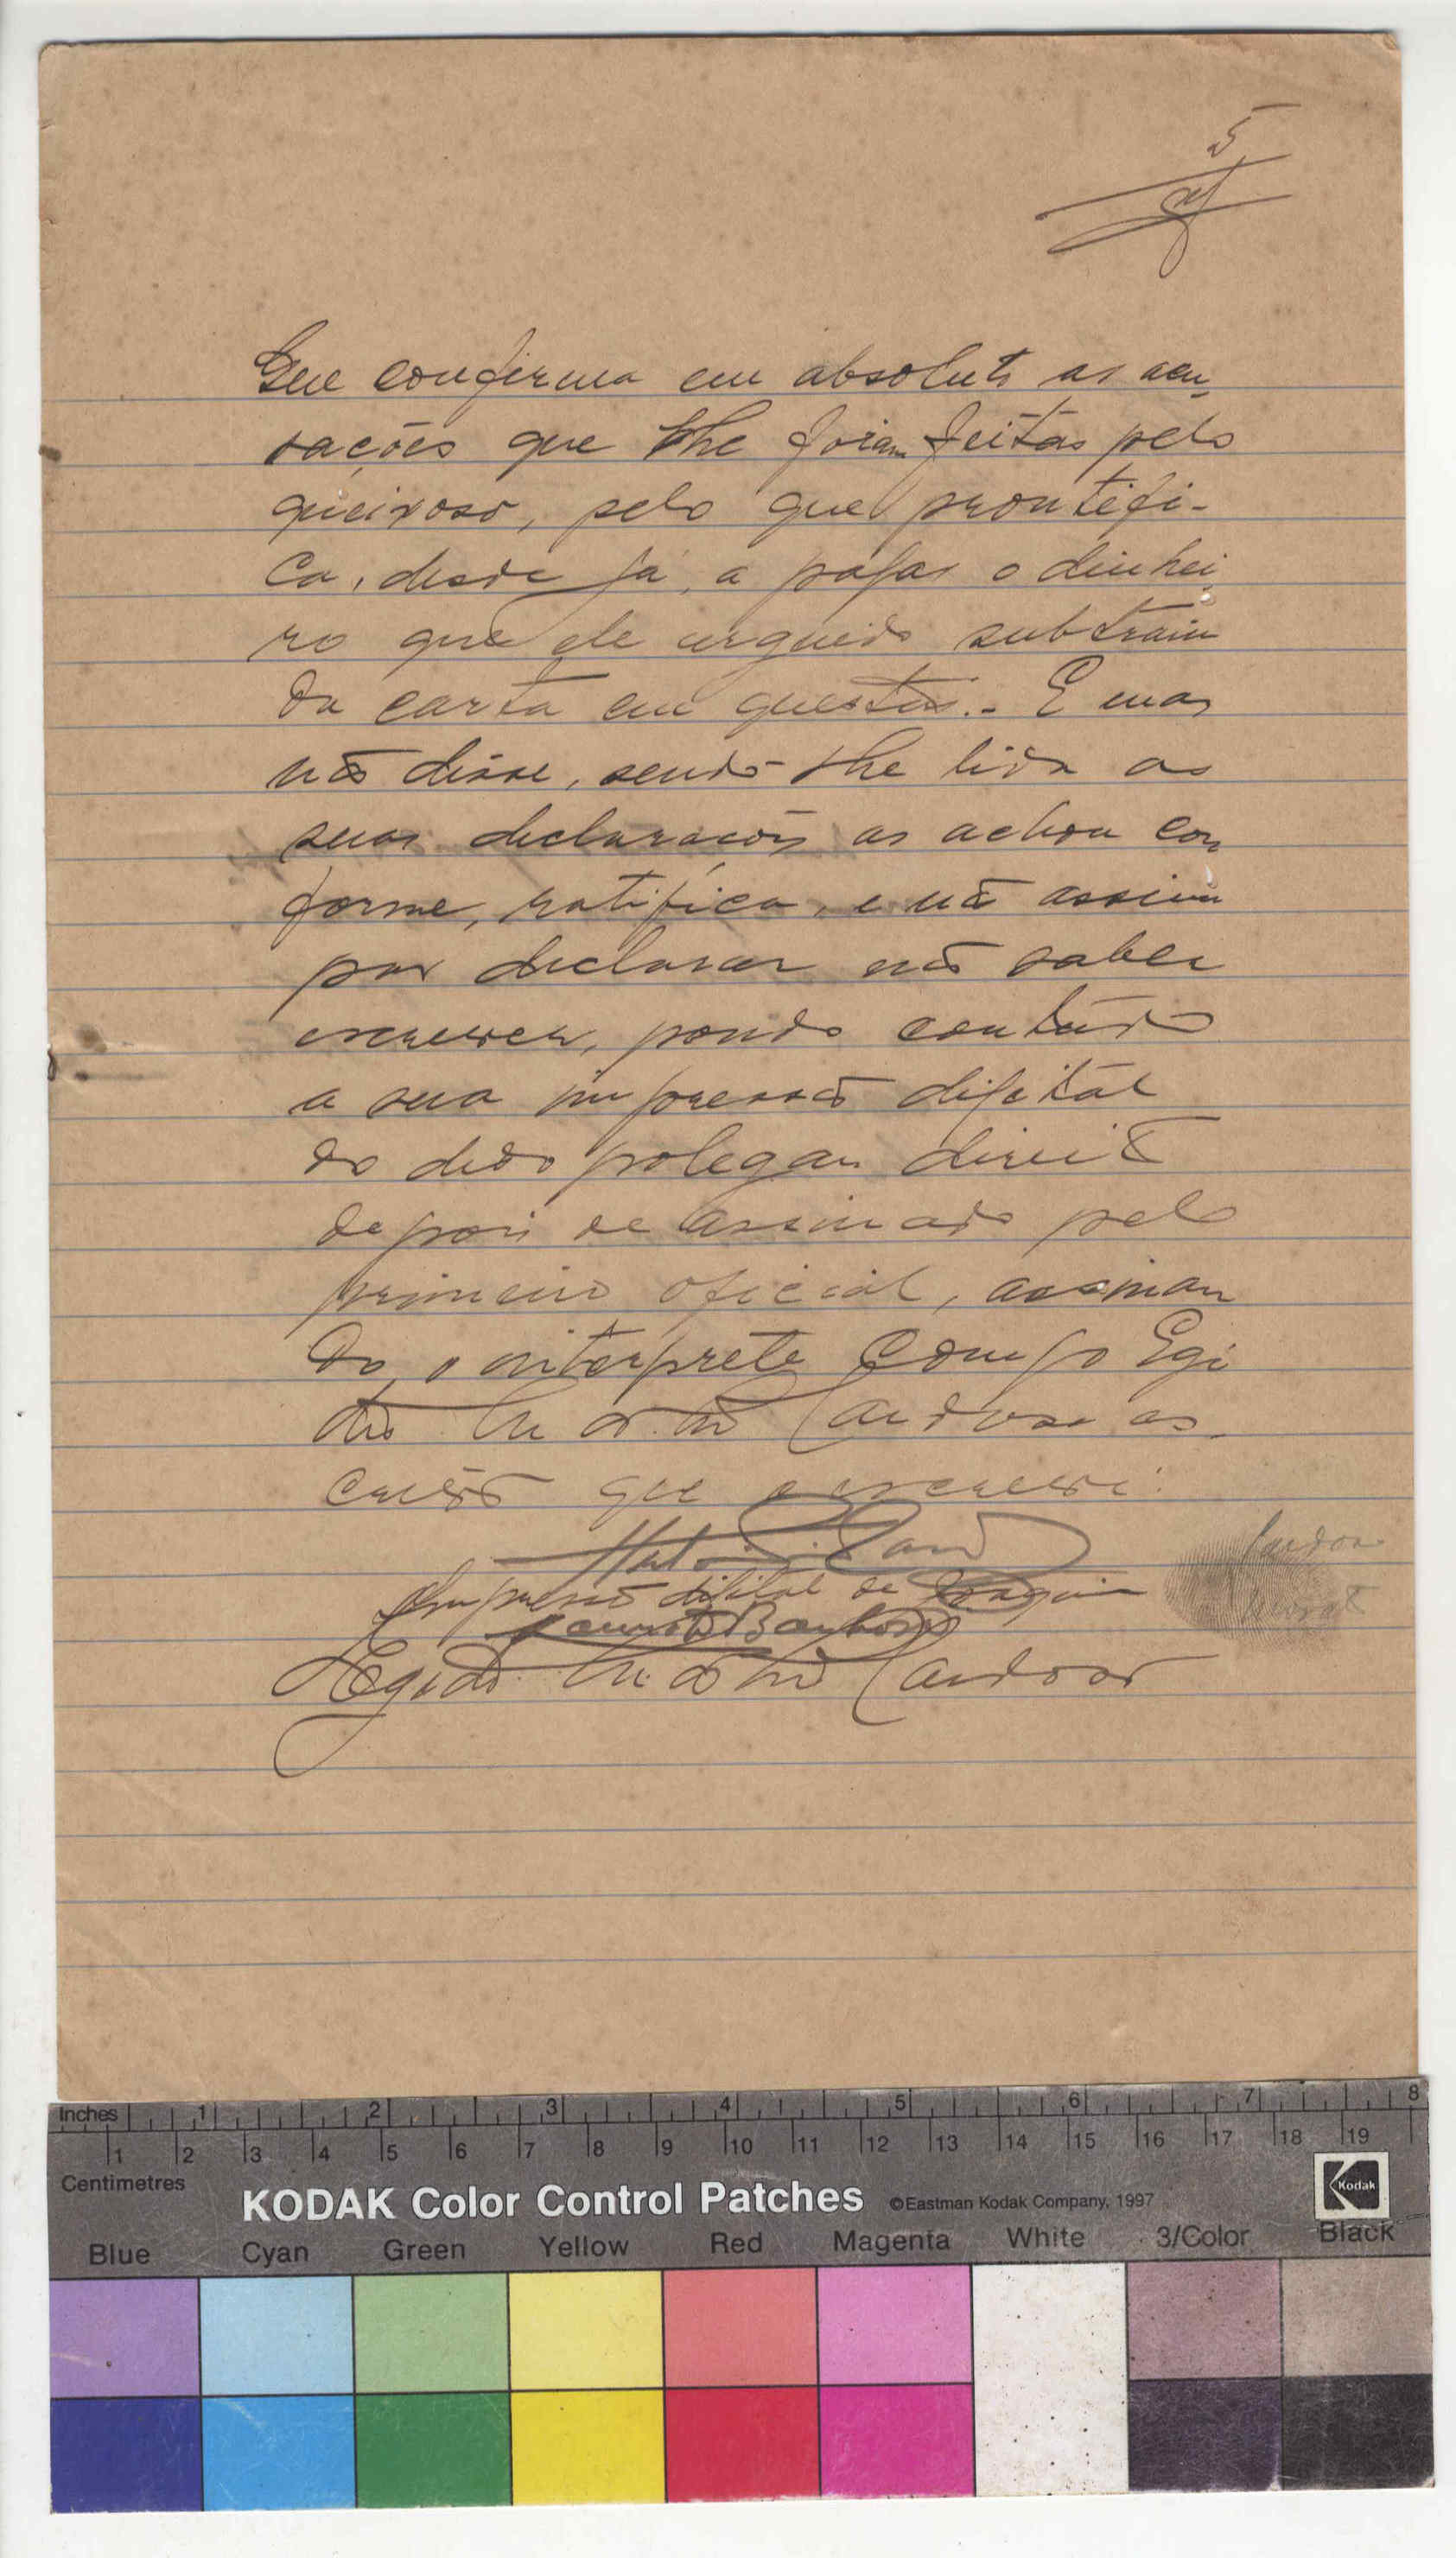 5
Que confirma em absoluto as acu-
sações que lhe foram feitas pelo
queixoso, pelo que prontifi-
ca, desde já, a pagar o dinhei
ro que ele arguido subtraiu
da carta em questão.- E mas
não disse, sendo lhe lida as
suas declarações as achou con
forme, ratifica, e não assina
por declarar não saber
escrever, pondo contudo
a sua impressão digital
do dedo polegar direito
depois de assinado pelo
primeiro oficial, assinan
do, o interprete comigo Egi
dio Cardoso es-
crivão que o escrevi.
Impressão digital de Joaquim
Barbosa
Egidio Cardoso
Inches 1 2 3 4 5 6 7 8
1 2 3 4 5 6 7 8 9 10 11 12 13 14 15 16 17 18 19
Centimetres
KODAK Color Control Patches ©Eastman Kodak Company, 1997 Kodak
Blue Cyan Green Yellow Red Magenta White 3/Color Black